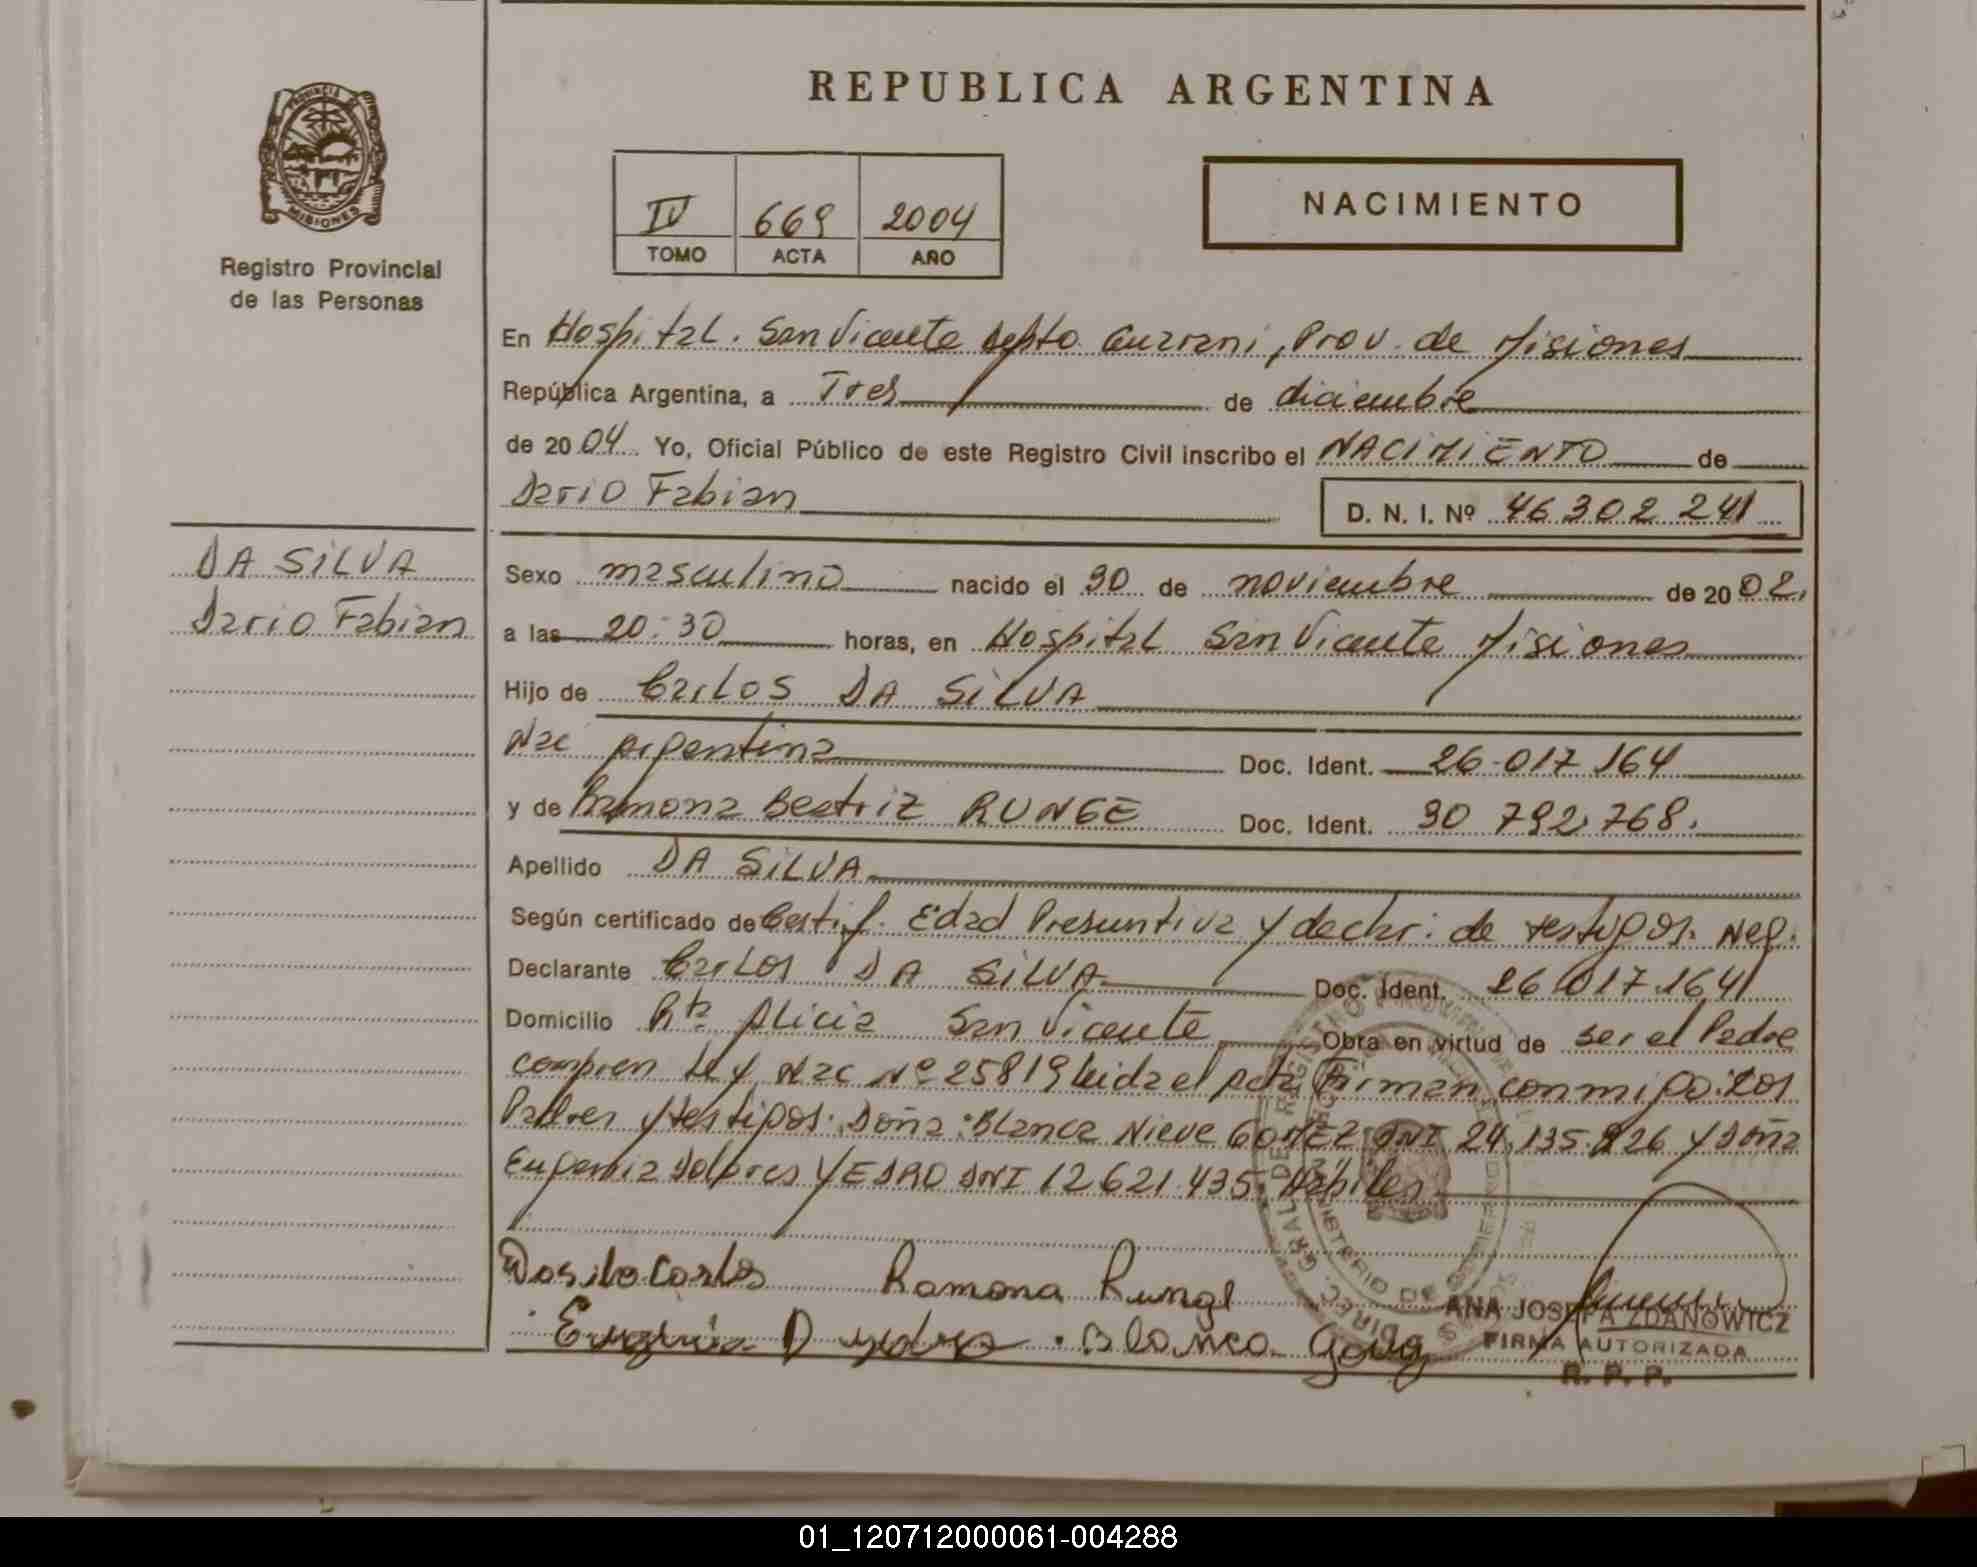 REPUBLICA ARGENTINA
PROVINCIA DE
MISIONES
Registro Provincial
de las Personas
IV 669 2004
TOMO ACTA AÑO
NACIMIENTO
En Hospital. San Vicente Depto Guarani, Prov. de Misiones
República Argentina, a Tres de diciembre
de 2004 Yo, Oficial Público de este Registro Civil inscribo el NACIMIENTO de
Dario Fabian
D. N. I. Nº 46.302.241
DA SILVA
Dario Fabian
Sexo masculino nacido el 30 de noviembre de 2002.
a las 20:30 horas, en Hospital San Vicente Misiones
Hijo de Carlos DA SILVA
Nac Argentina Doc. Ident. 26.017.164
y de Ramona Beatriz RUNGE Doc. Ident. 30 792.768.
Apellido DA SILVA
Según certificado de Certif. Edad Presuntiva y declar. de testigos. Neg.
Declarante Carlos DA SILVA Doc. Ident. 26.017.164
Domicilio Rta Alicia San Vicente Obra en virtud de ser el Padre
compren Ley Nac Nº 25819 leida el acta Firman conmigo: Los
Padres y testigos: Doña: Blanca Nieve GOMEZ DNI 24.135.826 y Doña
Eugenia Dolores YEDRO DNI 12.621.435. Habiles
Dasilva Carlos Ramona Runge
Eugenia D Blanca
ANA JOSEFA ZDANOWICZ
FIRMA AUTORIZADA
R. P. P.
01_120712000061-004288